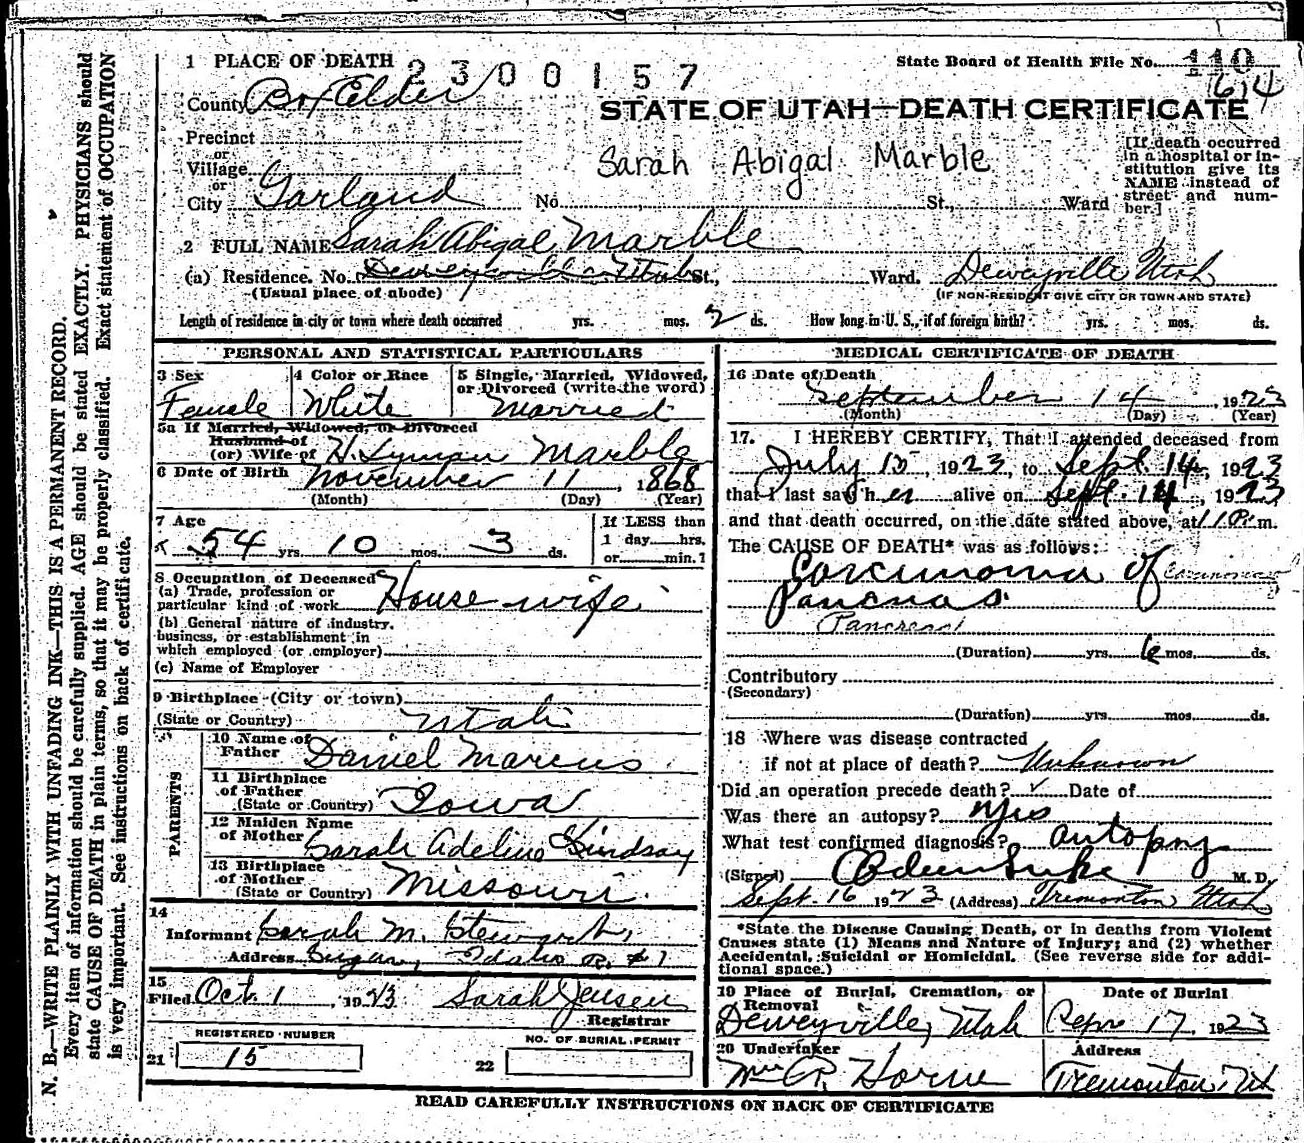 1 PLACE OF DEATH 2300157
State Board of Health File No. 110
164
County Box Elder
STATE OF UTAH—DEATH CERTIFICATE
Precinct
or
Village
or
City Garland No. St., Ward
Sarah Abigal Marble
[If death occurred
in a hospital or in-
stitution give its
NAME instead of
street and num-
ber.]
2 FULL NAME Sarah Abigal Marble
(a) Residence. No. Deweyville Utah St., Ward. Deweyville Utah
(Usual place of abode) (IF NON-RESIDENT GIVE CITY OR TOWN AND STATE)
Length of residence in city or town where death occurred yrs. mos. 2 ds. How long in U. S., if of foreign birth? yrs. mos. ds.
PERSONAL AND STATISTICAL PARTICULARS
3 Sex
Female
4 Color or Race
White
5 Single, Married, Widowed,
or Divorced (write the word)
Married
5a If Married, Widowed, or Divorced
Husband of
(or) Wife of H. Lyman Marble
6 Date of Birth November 11, 1868
(Month) (Day) (Year)
7 Age
54 yrs 10 mos. 3 ds.
If LESS than
1 day hrs.
or min. ?
8 Occupation of Deceased
(a) Trade, profession or
particular kind of work House wife
(b) General nature of industry,
business, or establishment in
which employed (or employer)
(c) Name of Employer
9 Birthplace (City or town)
(State or Country) Utah
PARENTS
10 Name of
Father Daniel Marcus
11 Birthplace
of Father
(State or Country) Iowa
12 Maiden Name
of Mother Sarah Adeline Lindsay
13 Birthplace
of Mother
(State or Country) Missouri
14
Informant Sarah M. Stewart,
Address Sugar, Idaho R. #1
15
Filed Oct. 1, 1923 Sarah Jensen
Registrar
REGISTERED NUMBER
21 15
NO. OF BURIAL PERMIT
22
MEDICAL CERTIFICATE OF DEATH
16 Date of Death
September 14, 1923
(Month) (Day) (Year)
17. I HEREBY CERTIFY, That I attended deceased from
July 15, 1923, to Sept. 14, 1923
that I last saw her alive on Sept. 14, 1923
and that death occurred, on the date stated above, at 11 P. m.
The CAUSE OF DEATH* was as follows:
Carcinoma of
Pancreas
(Duration) yrs. 6 mos. ds.
Contributory
(Secondary)
(Duration) yrs. mos. ds.
18 Where was disease contracted
if not at place of death? Unknown
Did an operation precede death? Date of
Was there an autopsy? Yes
What test confirmed diagnosis? autopsy
(Signed) M. D.
Sept. 16 1923 (Address) Tremonton Utah
*State the Disease Causing Death, or in deaths from Violent
Causes state (1) Means and Nature of Injury; and (2) whether
Accidental, Suicidal or Homicidal. (See reverse side for addi-
tional space.)
19 Place of Burial, Cremation, or
Removal
Deweyville, Utah
Date of Burial
17, 1923
20 Undertaker
Horne
Address
Tremonton, Ut
READ CAREFULLY INSTRUCTIONS ON BACK OF CERTIFICATE
N. B.—WRITE PLAINLY WITH UNFADING INK—THIS IS A PERMANENT RECORD.
Every item of information should be carefully supplied. AGE should be stated EXACTLY. PHYSICIANS should
state CAUSE OF DEATH in plain terms, so that it may be properly classified. Exact statement of OCCUPATION
is very important. See instructions on back of certificate.